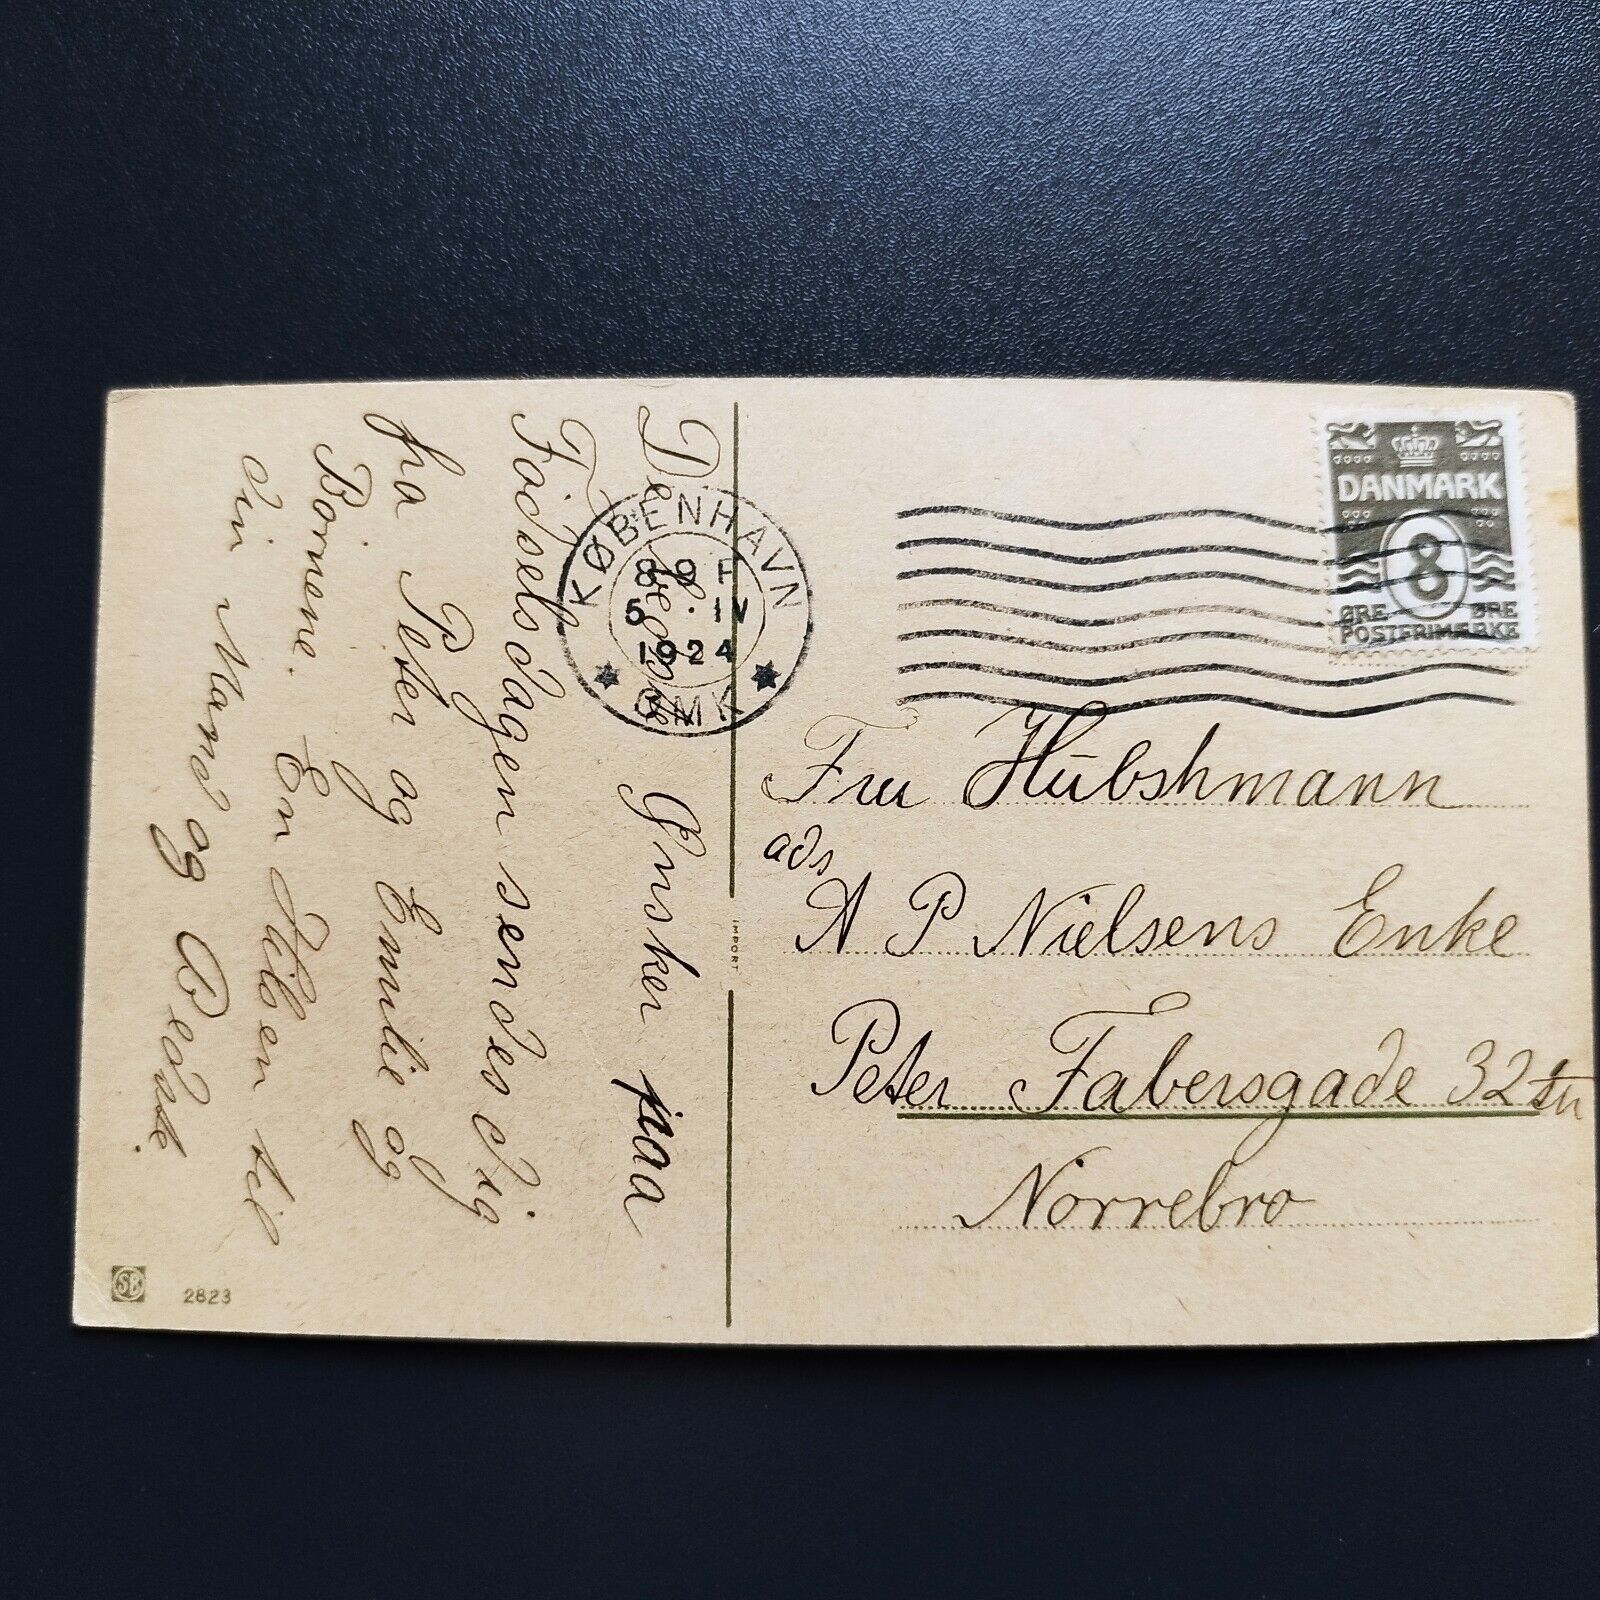 De bedste Ønsker paa
Fødselsdagen sendes dig
fra Peter og Emilie og
Börnene. En Hilsen til
din Mand og Bedste.
KØBENHAVN
8-9 F
5. IV
1924
OMK
DANMARK
8
ØRE ØRE
POSTFRIMÆRKE
Fru Hübshmann
ads
A P Nielsens Enke
Peter Fabersgade 32 stu
Nörrebro
IMPORT
SB 2823